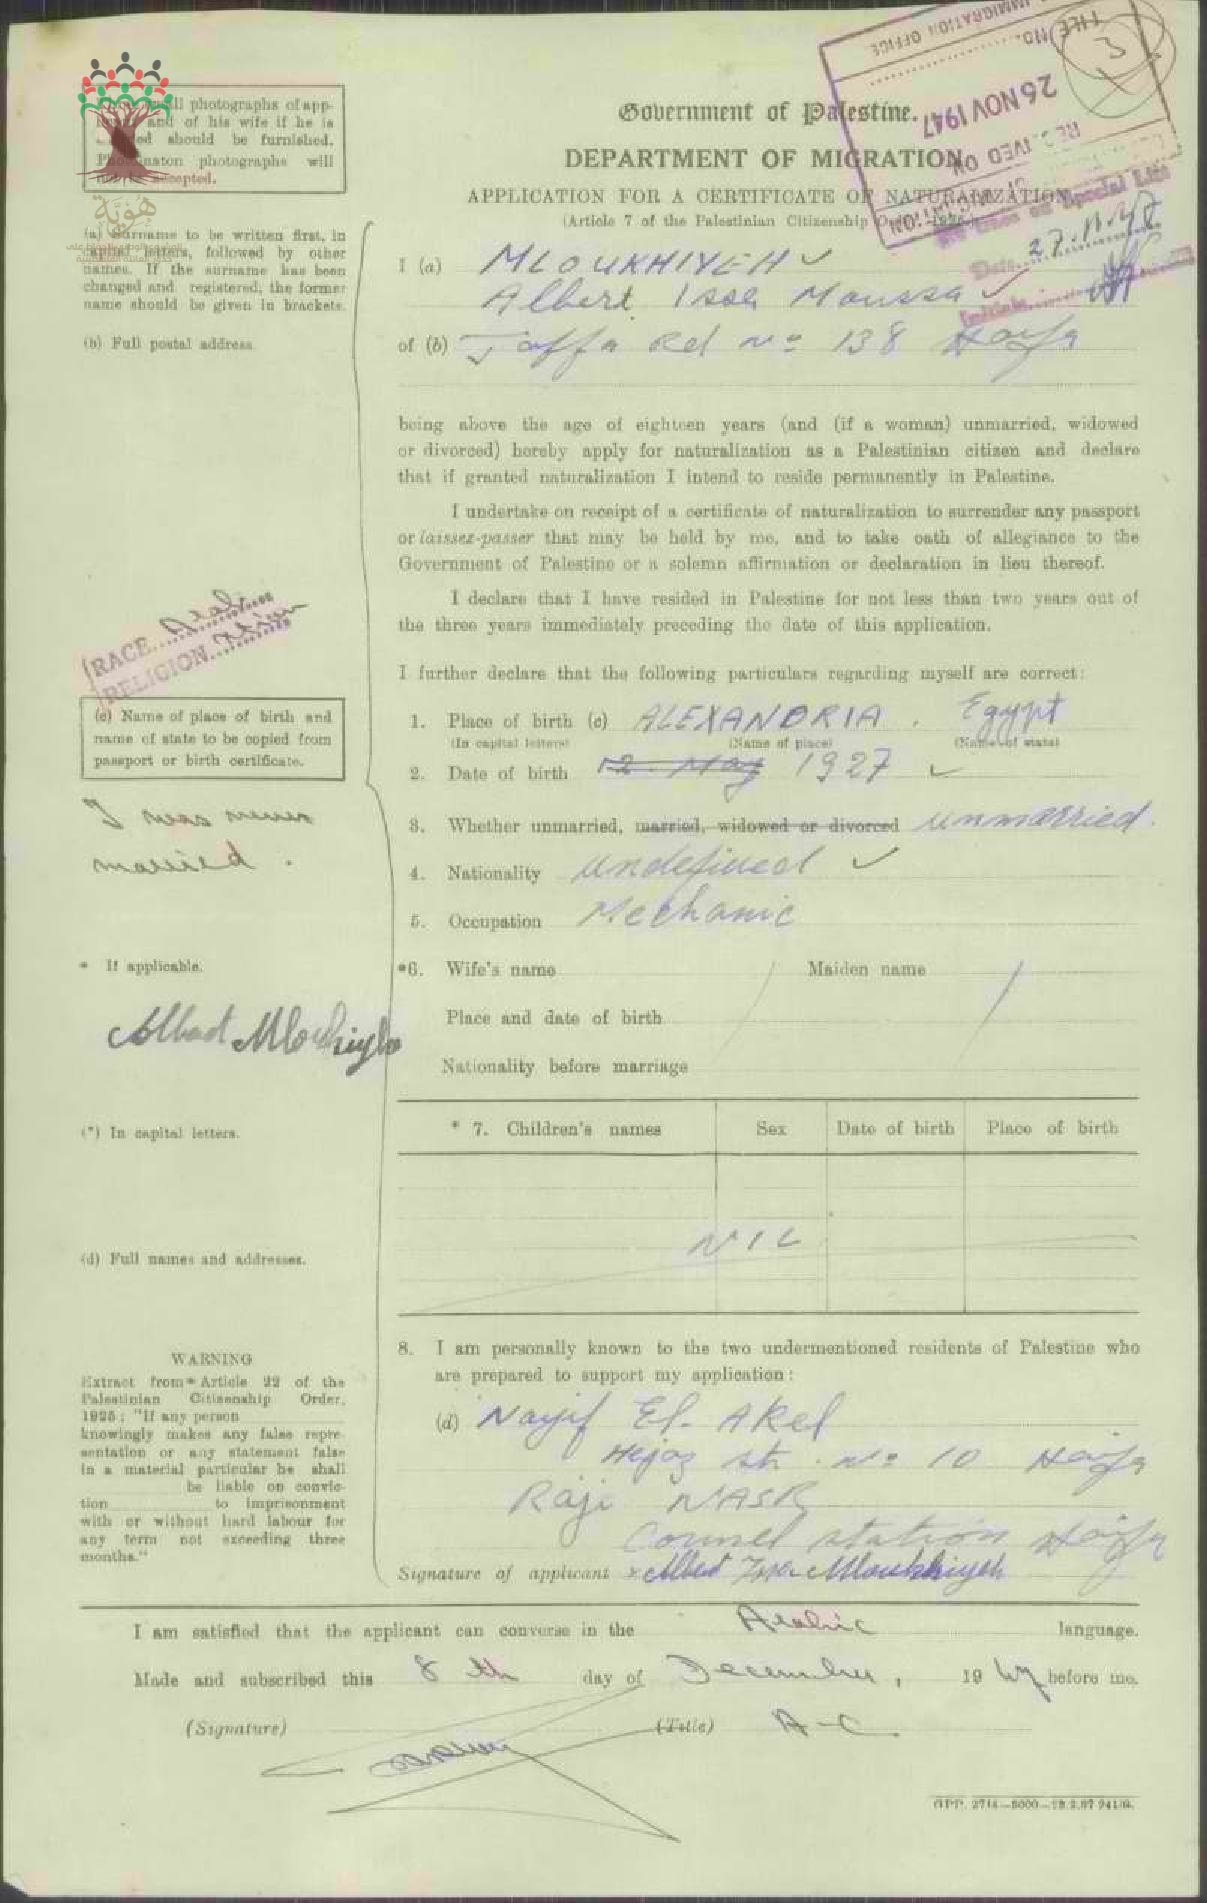 FILE NO.
IMMIGRATION OFFICE
3
26 NOV 1947
RECEIVED ON
Special List
Date 27.11.47
Initials
photographs of app-
and of his wife if he is
should be furnished.
photographs will
accepted.
هُوِيَّة
Government of Palestine.
DEPARTMENT OF MIGRATION
APPLICATION FOR A CERTIFICATE OF NATURALIZATION
(Article 7 of the Palestinian Citizenship
(a) Surname to be written first, in
capital letters, followed by other
names. If the surname has been
changed and registered, the former
name should be given in brackets.
(b) Full postal address.
I (a) MLOUKHIYEH
Albert Issa Moussa
of (b) Jaffa Rd No 138 Haifa
being above the age of eighteen years (and (if a woman) unmarried, widowed
or divorced) hereby apply for naturalization as a Palestinian citizen and declare
that if granted naturalization I intend to reside permanently in Palestine.
I undertake on receipt of a certificate of naturalization to surrender any passport
or laissez-passer that may be held by me, and to take oath of allegiance to the
Government of Palestine or a solemn affirmation or declaration in lieu thereof.
I declare that I have resided in Palestine for not less than two years out of
the three years immediately preceding the date of this application.
RACE Arab
RELIGION
I further declare that the following particulars regarding myself are correct:
(c) Name of place of birth and
name of state to be copied from
passport or birth certificate.
1. Place of birth (c) ALEXANDRIA. Egypt
(In capital letters) (Name of place) (Name of state)
2. Date of birth 12 May 1927
I was never
married.
3. Whether unmarried, married, widowed or divorced unmarried.
4. Nationality undefined
5. Occupation Mechanic
* If applicable.
*6. Wife's name Maiden name
Place and date of birth
Nationality before marriage
Albert Mloukhiyeh
(*) In capital letters.
* 7. Children's names Sex Date of birth Place of birth
NIL
(d) Full names and addresses.
8. I am personally known to the two undermentioned residents of Palestine who
are prepared to support my application:
(d) Nayif El-Akel
Hejaz str. No 10 Haifa
Raji NASR
station Haifa
WARNING
Extract from Article 22 of the
Palestinian Citizenship Order,
1925: "If any person
knowingly makes any false repre-
sentation or any statement false
in a material particular he shall
be liable on convic-
tion to imprisonment
with or without hard labour for
any term not exceeding three
months."
Signature of applicant Albert Issa Mloukhiyeh
I am satisfied that the applicant can converse in the Arabic language.
Made and subscribed this 8th day of December, 1947 before me.
(Signature) (Title) A-C